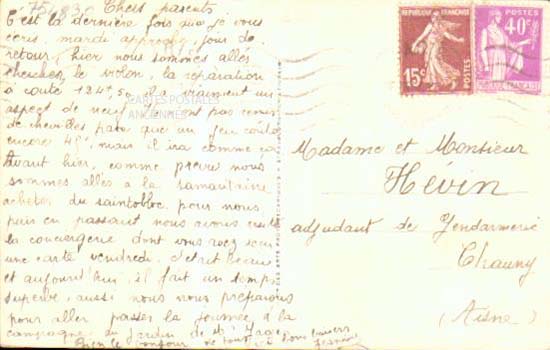 75/830
Chers parents
C'est la dernière fois que je vous
écris, mardi approche, jour de
retour, hier nous sommes allés
chercher le violon, la réparation
a couté 124f,50, il a vraiment un
aspect de neuf, ont pas remis
de chevilles, parce que un jeu coute
encore 45f, mais il ira comme ça
Avant hier, comme prévu nous
sommes allés à la samaritaine
acheter du saintobloc, pour nous
puis en passant, nous avons visité
la conciergerie dont vous avez reçu
une carte vendredi. c'était beau
et aujourd'hui, il fait un temps
superbe, aussi nous nous préparons
pour aller passer la journée à la
campagne, au jardin de
Bien le bonjour de tous
CARTES POSTALES
ANCIENNES
REPUBLIQUE FRANÇAISE
15c
POSTES
POSTES
40c
Madame et Monsieur
Hévin
adjudant de Gendarmerie
Chauny
(Aisne)